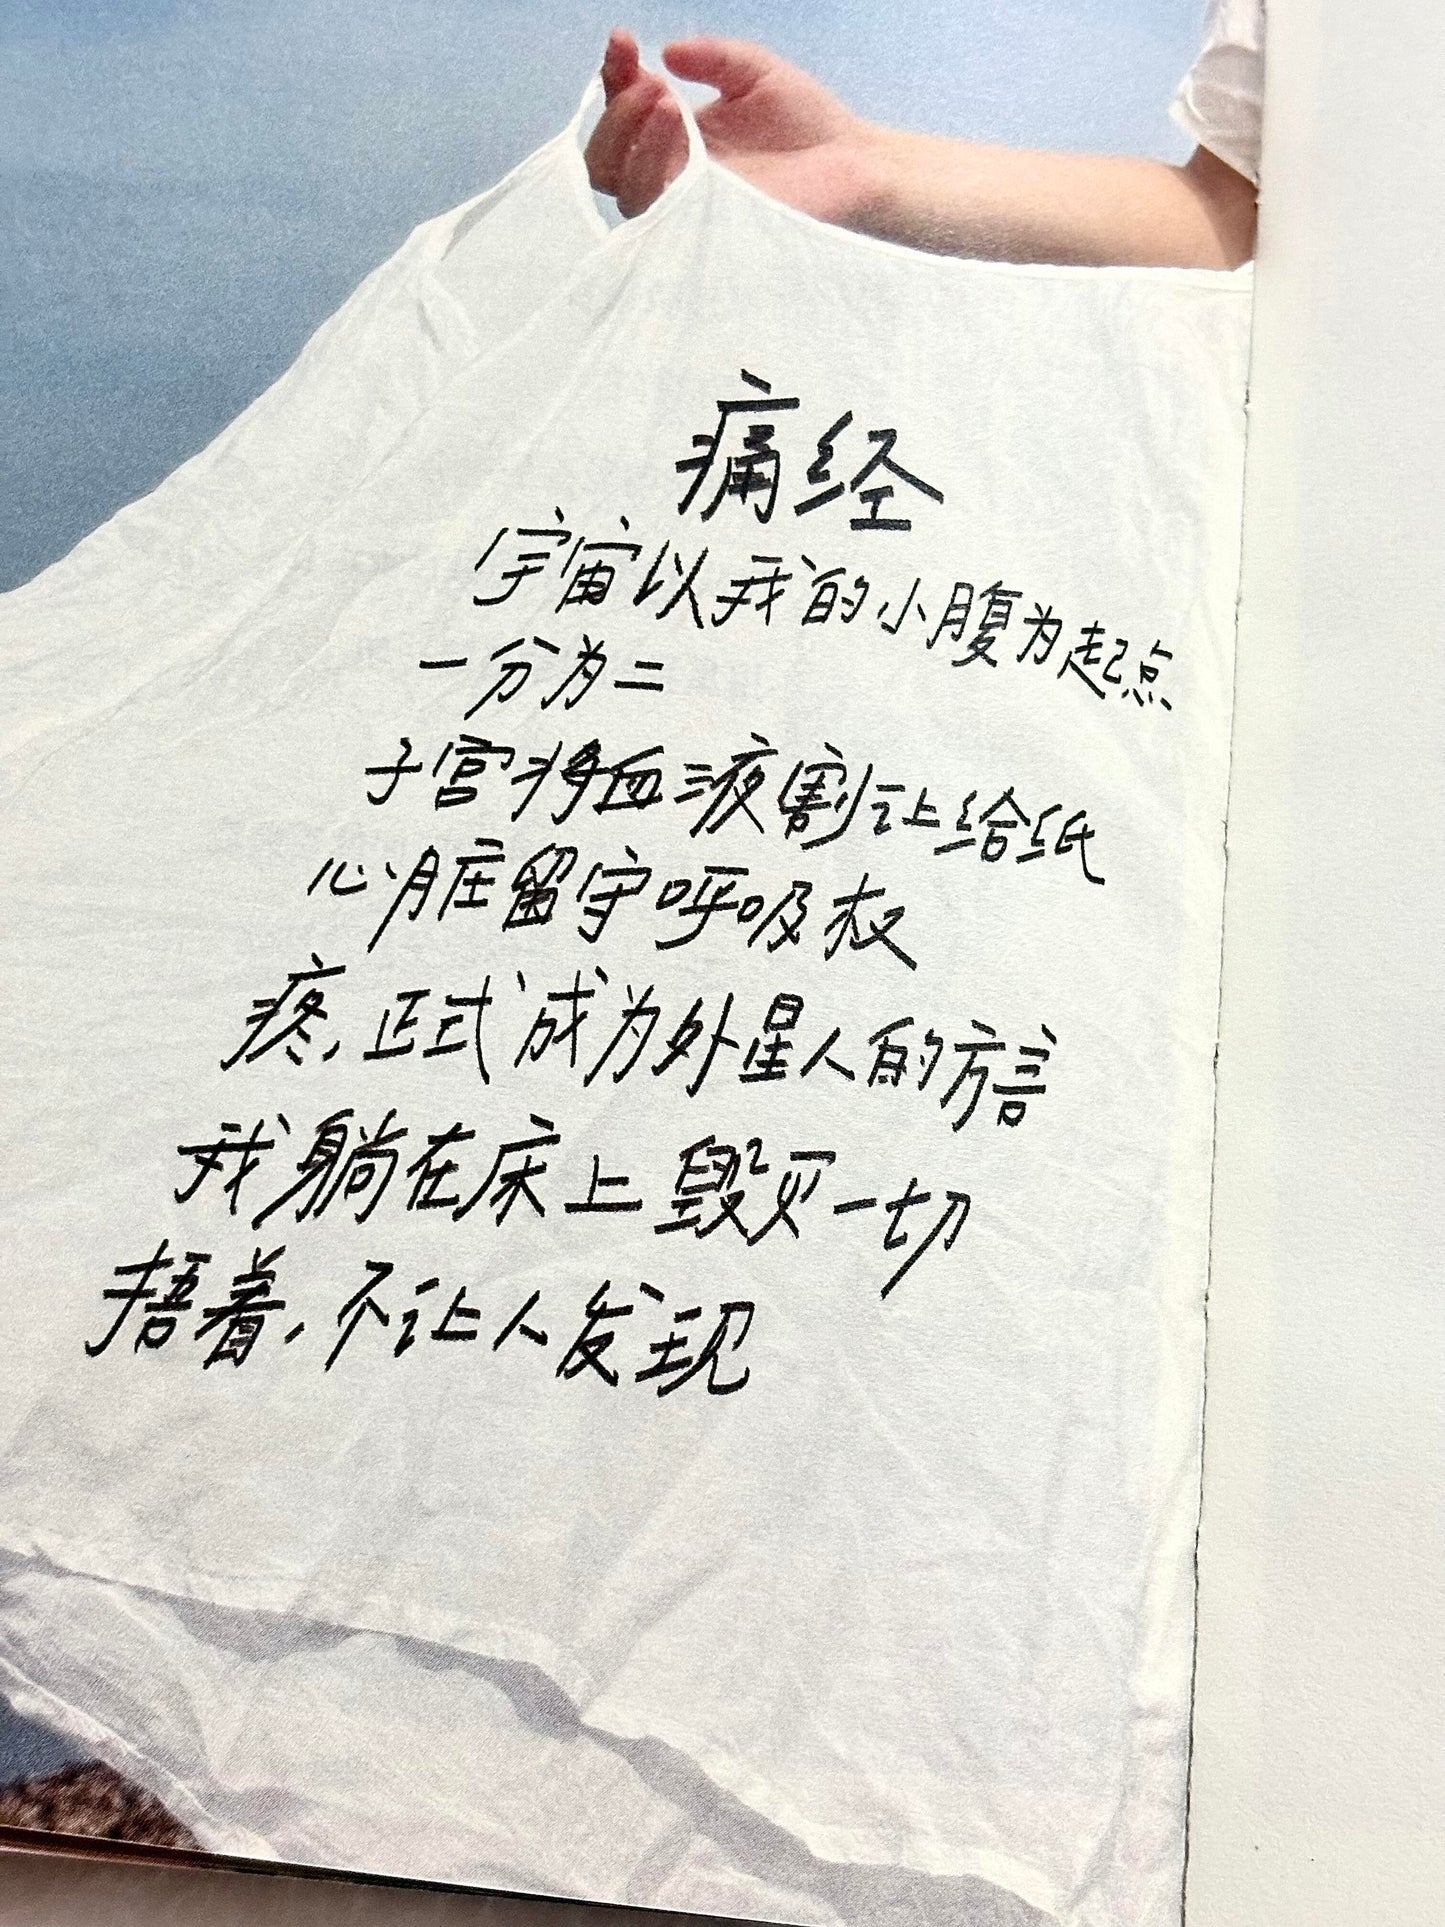 痛经
宇宙以我的小腹为起点
一分为二
子宫将血液割让给纸
心脏留守呼吸权
疼,正式成为外星人的方言
我躺在床上毁灭一切
捂着,不让人发现